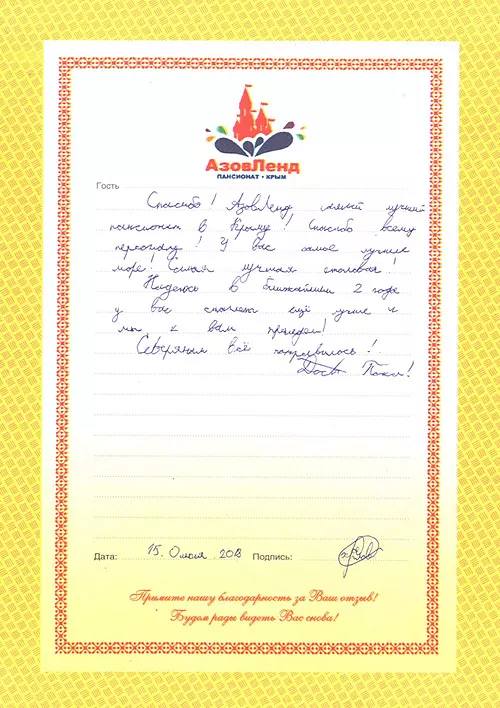 АзовЛенд
ПАНСИОНАТ • КРЫМ
Гость
Спасибо! АзовЛенд самый лучший
пансионат в Крыму! Спасибо всему
персоналу! У вас самое лучшее
море! Самая лучшая столовая!
Надеюсь в ближайшии 2 года
у вас станет ещё лучше и
мы к вам приедем!
Северянам всё понравилось!
Пока!
Дата: 15. 2013 Подпись:
Примите нашу благодарность за Ваш отзыв!
Будем рады видеть Вас снова!